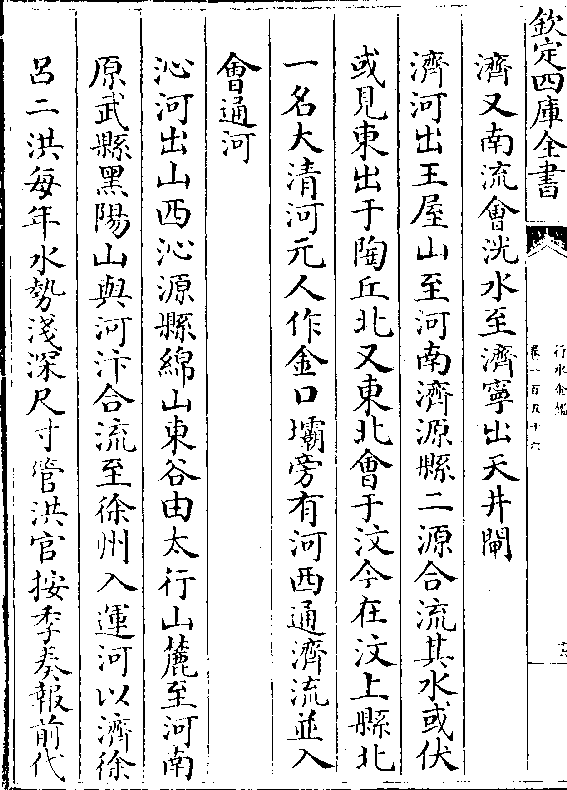 欽定四庫全書
行水金鑑
卷一百五十六
濟又南流會洸水至濟寧出天井閘
濟河出王屋山至河南濟源縣二源合流其水或伏
或見東出于陶丘北又東北會于汶今在汶上縣北
一名大清河元人作金口壩旁有河西通濟流並入
會通河
沁河出山西沁源縣綿山東谷由太行山麓至河南
原武縣黑陽山與河汴合流至徐州入運河以濟徐
呂二洪每年水勢淺深尺寸管洪官按季奏報前代